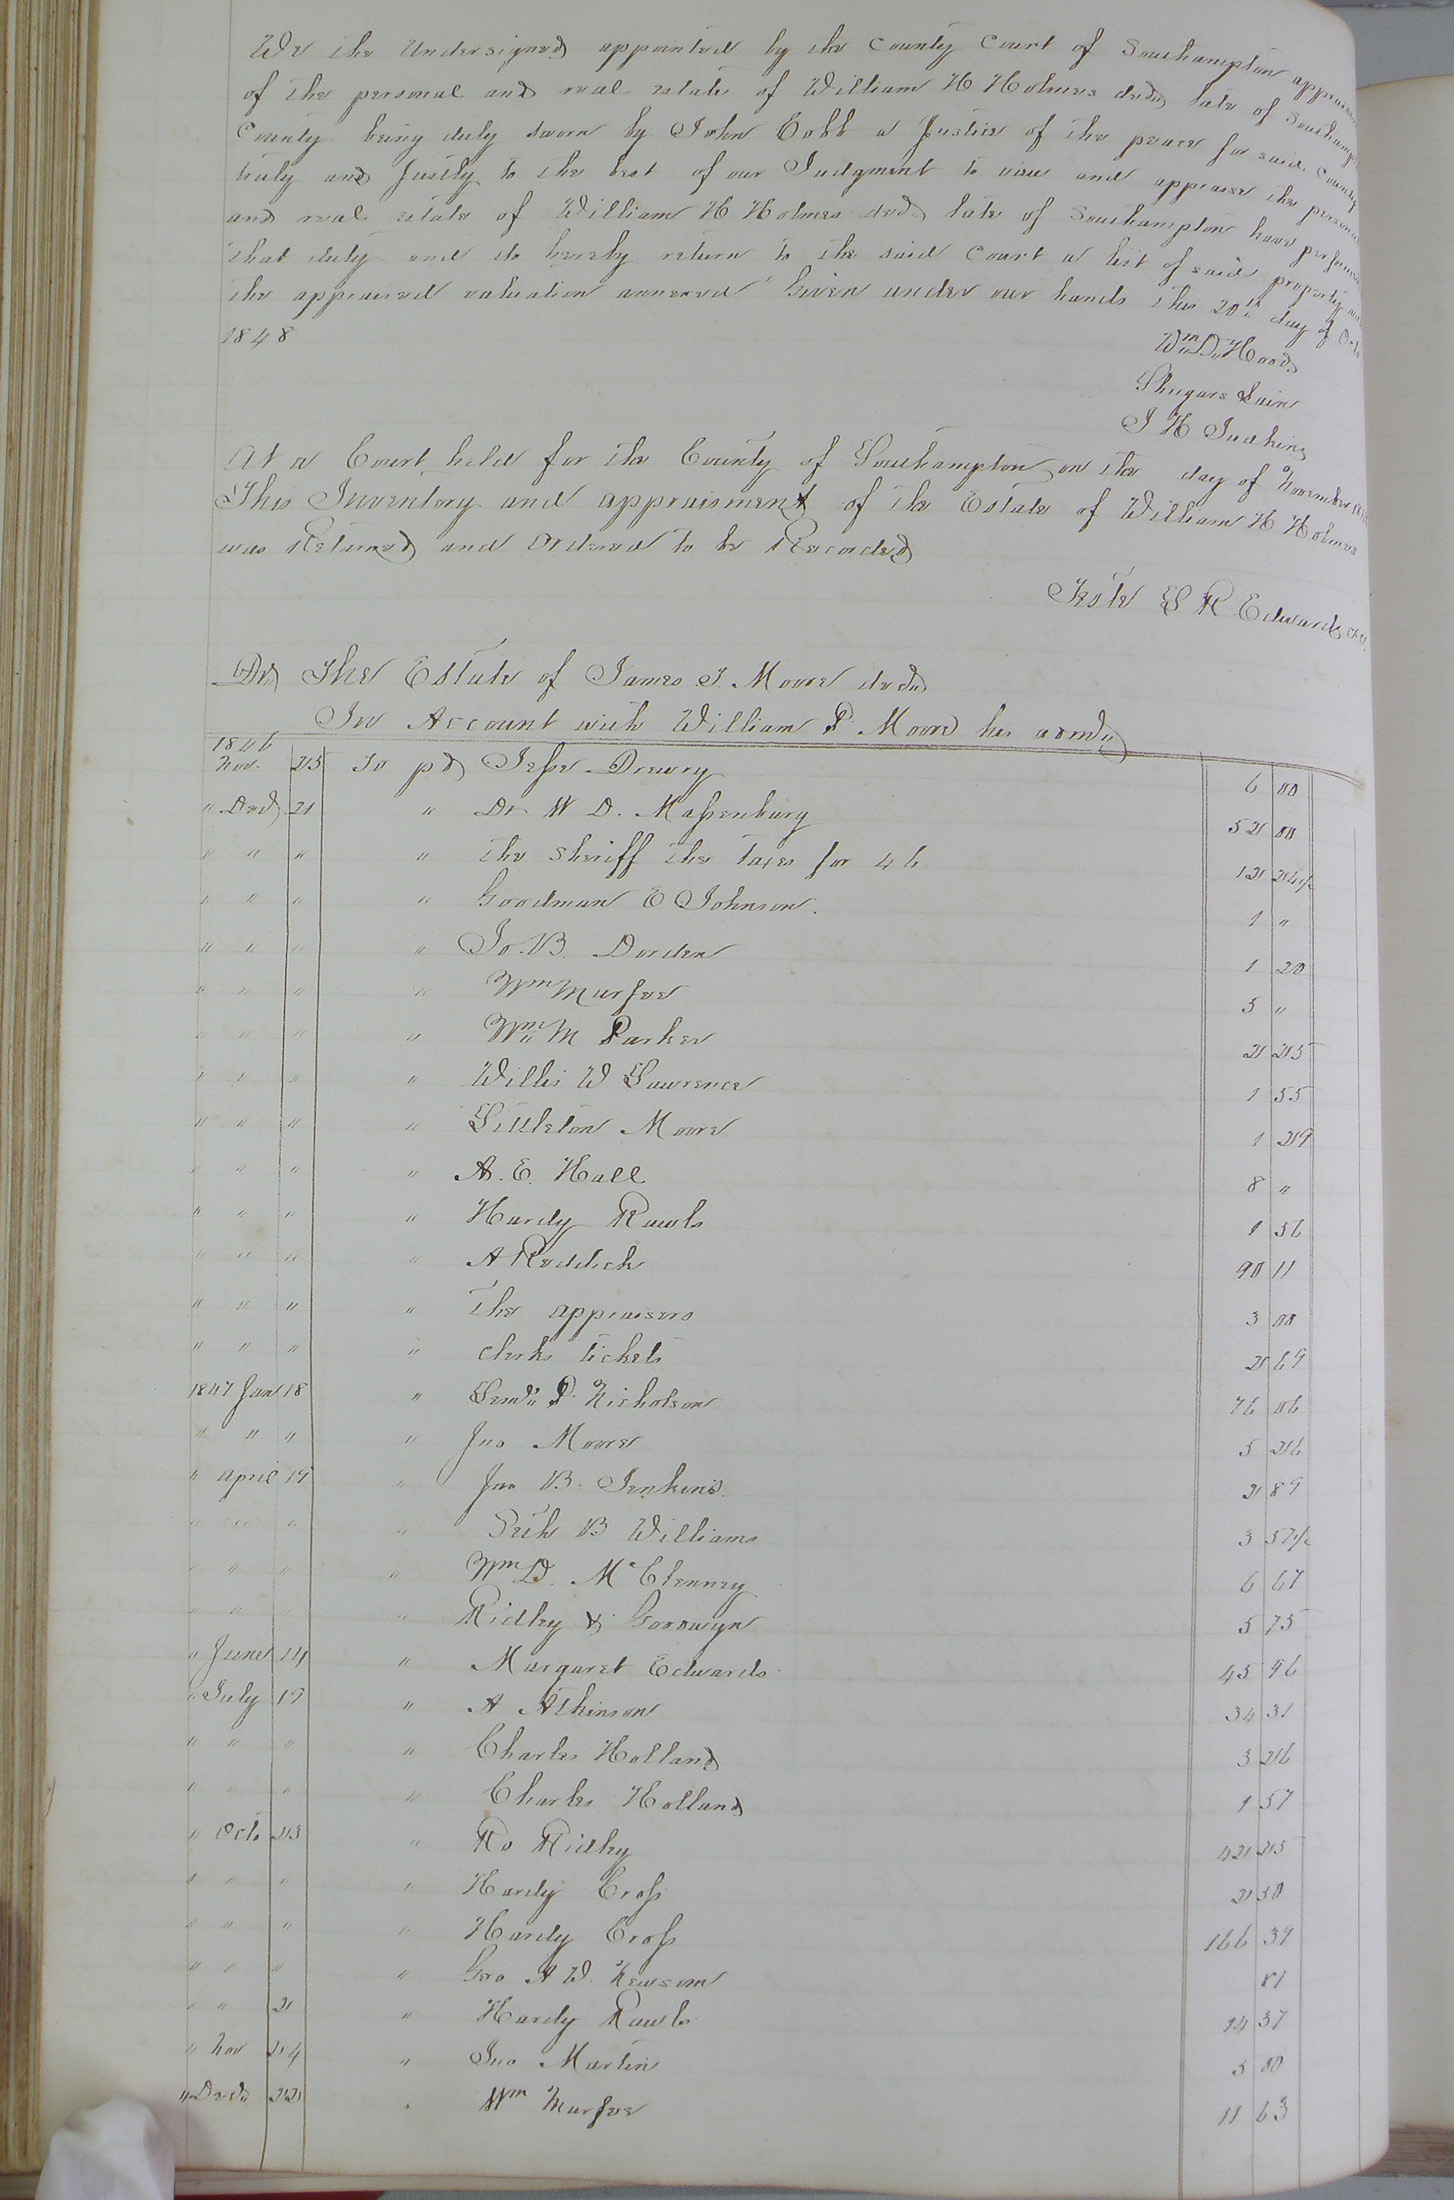 We the Undersigned appointed by the County Court of Southampton appraisers
of the personal and real estate of William H Holmes decd late of Southampton
County being duly sworn by John Cobb a Justice of the peace for said County
truly and Justly to the best of our Judgment to view and appraise the personal
and real estate of William H Holmes decd late of Southampton have performed
that duty and do hereby return to the said Court a list of said property and
the appraised valuation annexed Given under our hands this 20th day of Oct
1848
Wm D Hood
Shugars Lain
J H Judkins
At a Court held for the County of Southampton on the day of November
This Inventory and appraisment of the Estate of William H Holmes
was Returned and Ordered to be Recorded
Teste L R Edwards
Dr The Estate of James J Moore decd
In Account with William P Moore his admr
1846
Nov. 25 To pd Jesse Drewry 6 00
" Decd 21 " Dr W D. Massenburg 52 00
" " " " the Sheriff the Taxes for 46 12 24 1/2
" " " " Goodman E Johnson. 1 "
" " " " Jo. B. Darden 1 20
" " " " Wm Murfee 5 "
" " " " Wm M Parker 2 25
" " " " Willis W Lawrence 1 55
" " " " Littleton Moore 1 29
" " " " A. E. Hall 8 "
" " " " Hardy Rawls 1 36
" " " " A Reddick 90 11
" " " " The appraisers 3 00
" " " " Clerks tickets 2 69
1847 Jan 18 " Leml P. Nicholson 76 06
" " " " Jno Moore 5 26
" April 19 " Jno B. Jenkins. 2 89
" " " " Seth B Williams 3 57 1/2
" " " " Wm D. McClenney 6 67
" " " " Ridley & Goodwyn 5 75
" June 14 " Margaret Edwards 45 96
" July 19 " A Atkinson 34 31
" " " " Charles Holland 3 26
" " " " Charles Holland 1 57
" Octo 23 " Ro Ridley 42 25
" " " " Hardy Cross 2 30
" " " " Hardy Cross 166 39
" " " " Geo A W. Newsom 81
" " 2 " Hardy Rawls 14 37
" Nov 24 " Jno Martin 5 00
" Decd 22 Wm Murfee 11 63